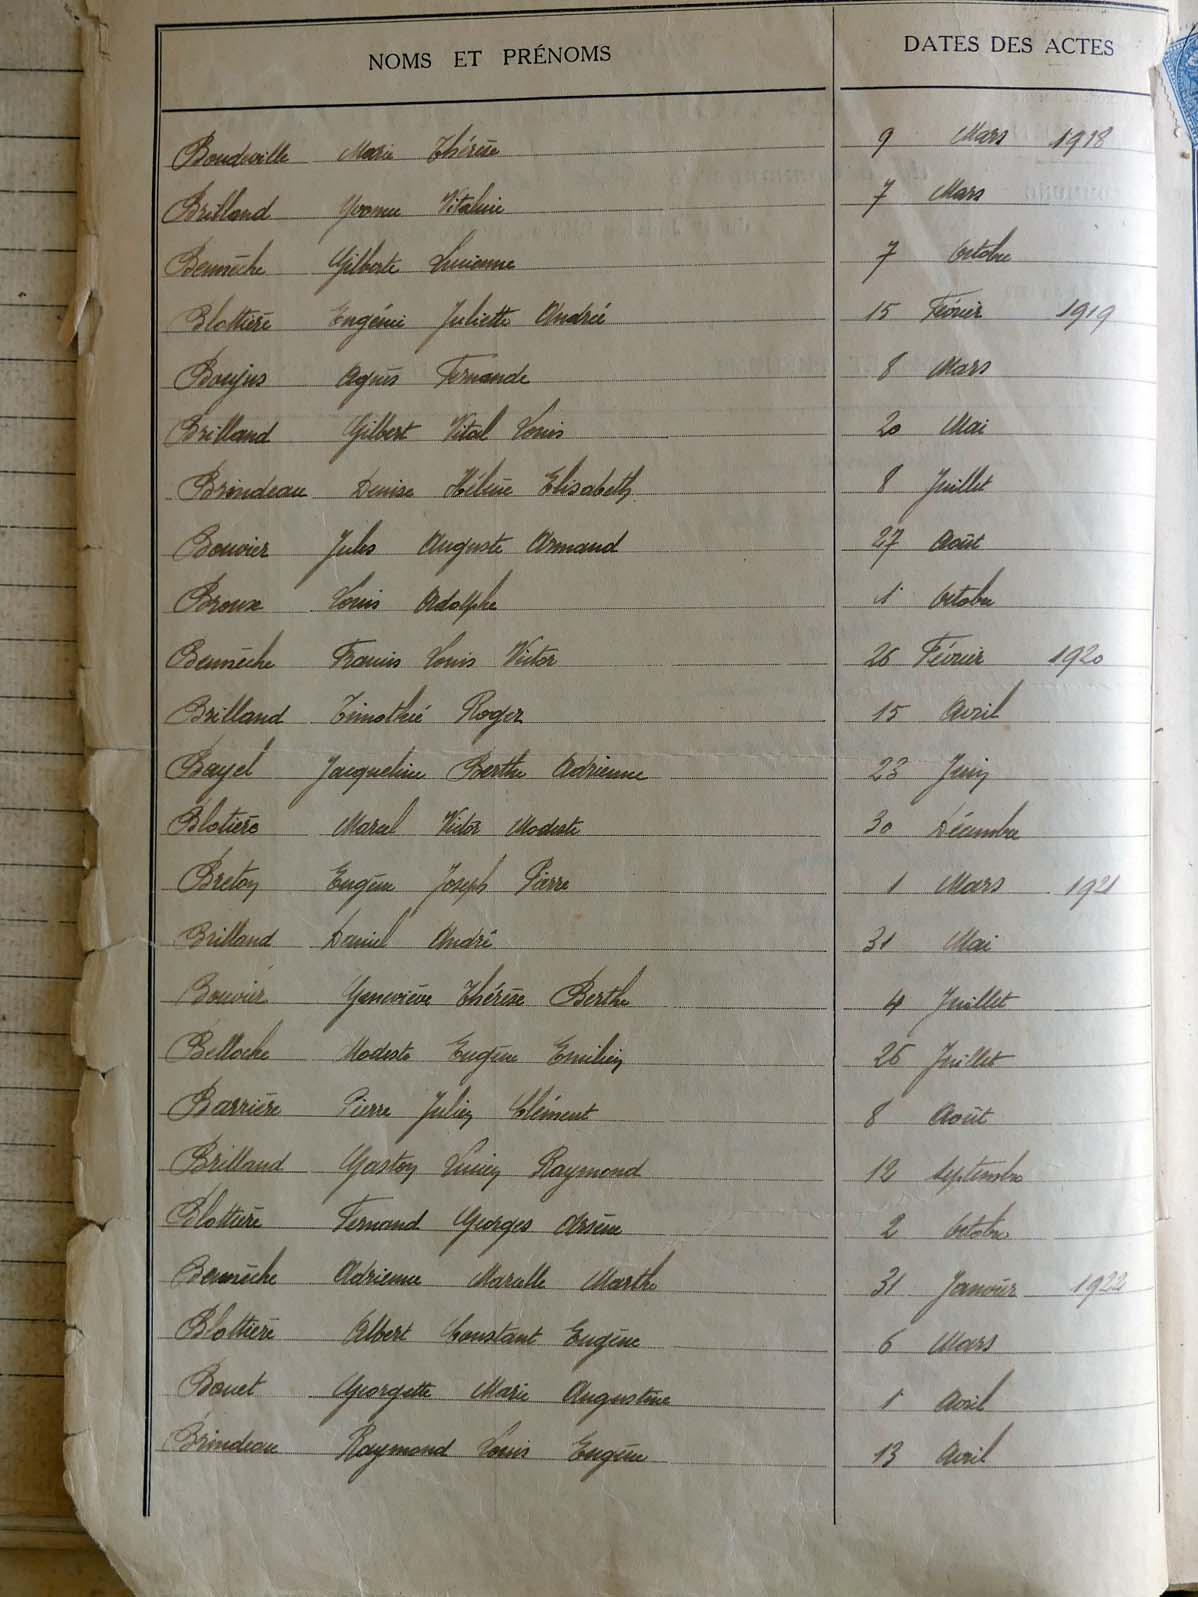 NOMS ET PRÉNOMS DATES DES ACTES
Boudeville Marie Thérèse 9 Mars 1918
Brilland Yvonne Vitaline 7 Mars
Bennèche Gilberte Lucienne 7 Octobre
Blottière Eugénie Juliette Andrée 15 Février 1919
Boujus Agnès Fernande 8 Mars
Brilland Gilbert Vital Louis 20 Mai
Brindeau Denise Hélène Elisabeth 8 Juillet
Bouvier Jules Auguste Armand 27 Août
Broux Louis Adolphe 1 Octobre
Bennèche Francis Louis Victor 26 Février 1920
Brilland Timothée Roger 15 Avril
Bayel Jacqueline Berthe Adrienne 23 Juin
Blotière Marcel Victor Modeste 30 Décembre
Breton Eugène Joseph Pierre 1 Mars 1921
Brilland Daniel André 31 Mai
Bouvier Geneviève Thérèse Berthe 4 Juillet
Belloche Modeste Eugène Emilien 26 Juillet
Barrière Pierre Julien Clément 8 Août
Brilland Gaston Lucien Raymond 12 Septembre
Blottière Fernand Georges Arsène 2 Octobre
Bennèche Adrienne Marcelle Marthe 31 Janvier 1922
Blottière Albert Constant Eugène 6 Mars
Bouet Georgette Marie Augustine 1 Avril
Brindeau Raymond Louis Eugène 13 Avril